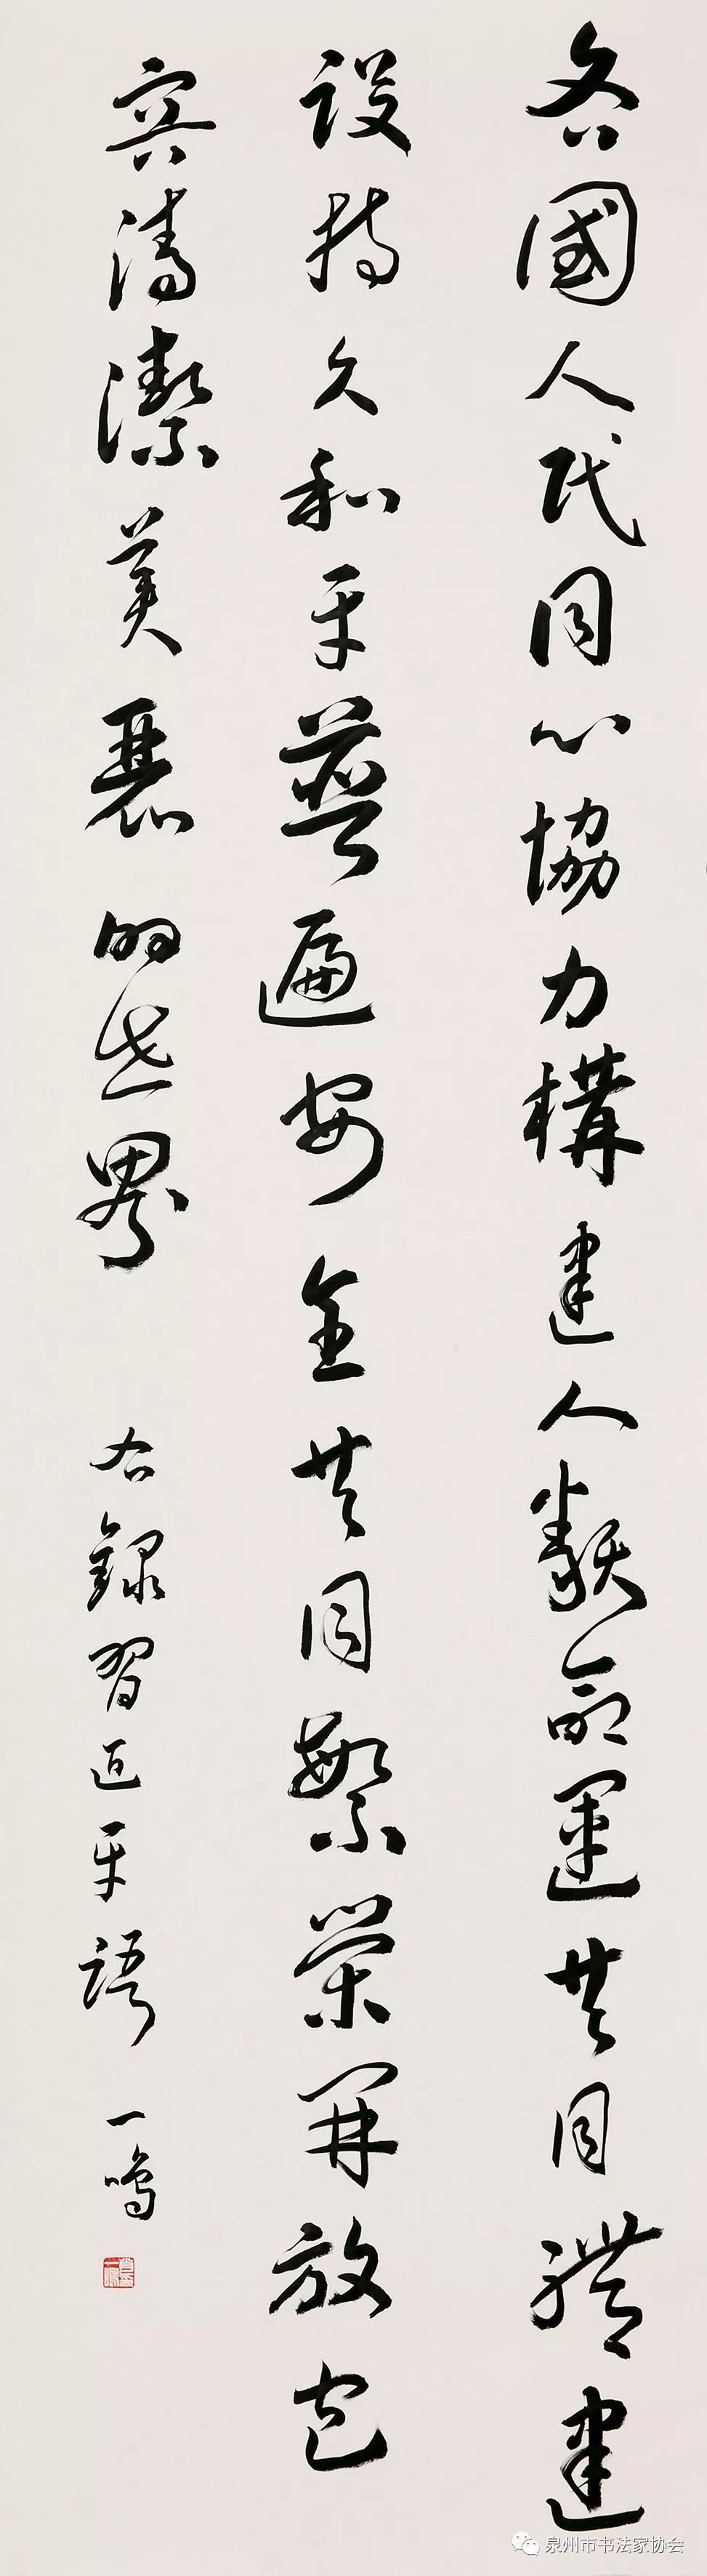 各國人民同心協力構建人類命運共同體建
設持久和平普遍安全共同繁榮開放包
容清潔美麗的世界
右録習近平語
一鳴
泉州市书法家协会